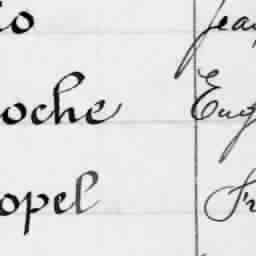 io Jean
oche Eug
opel Fr